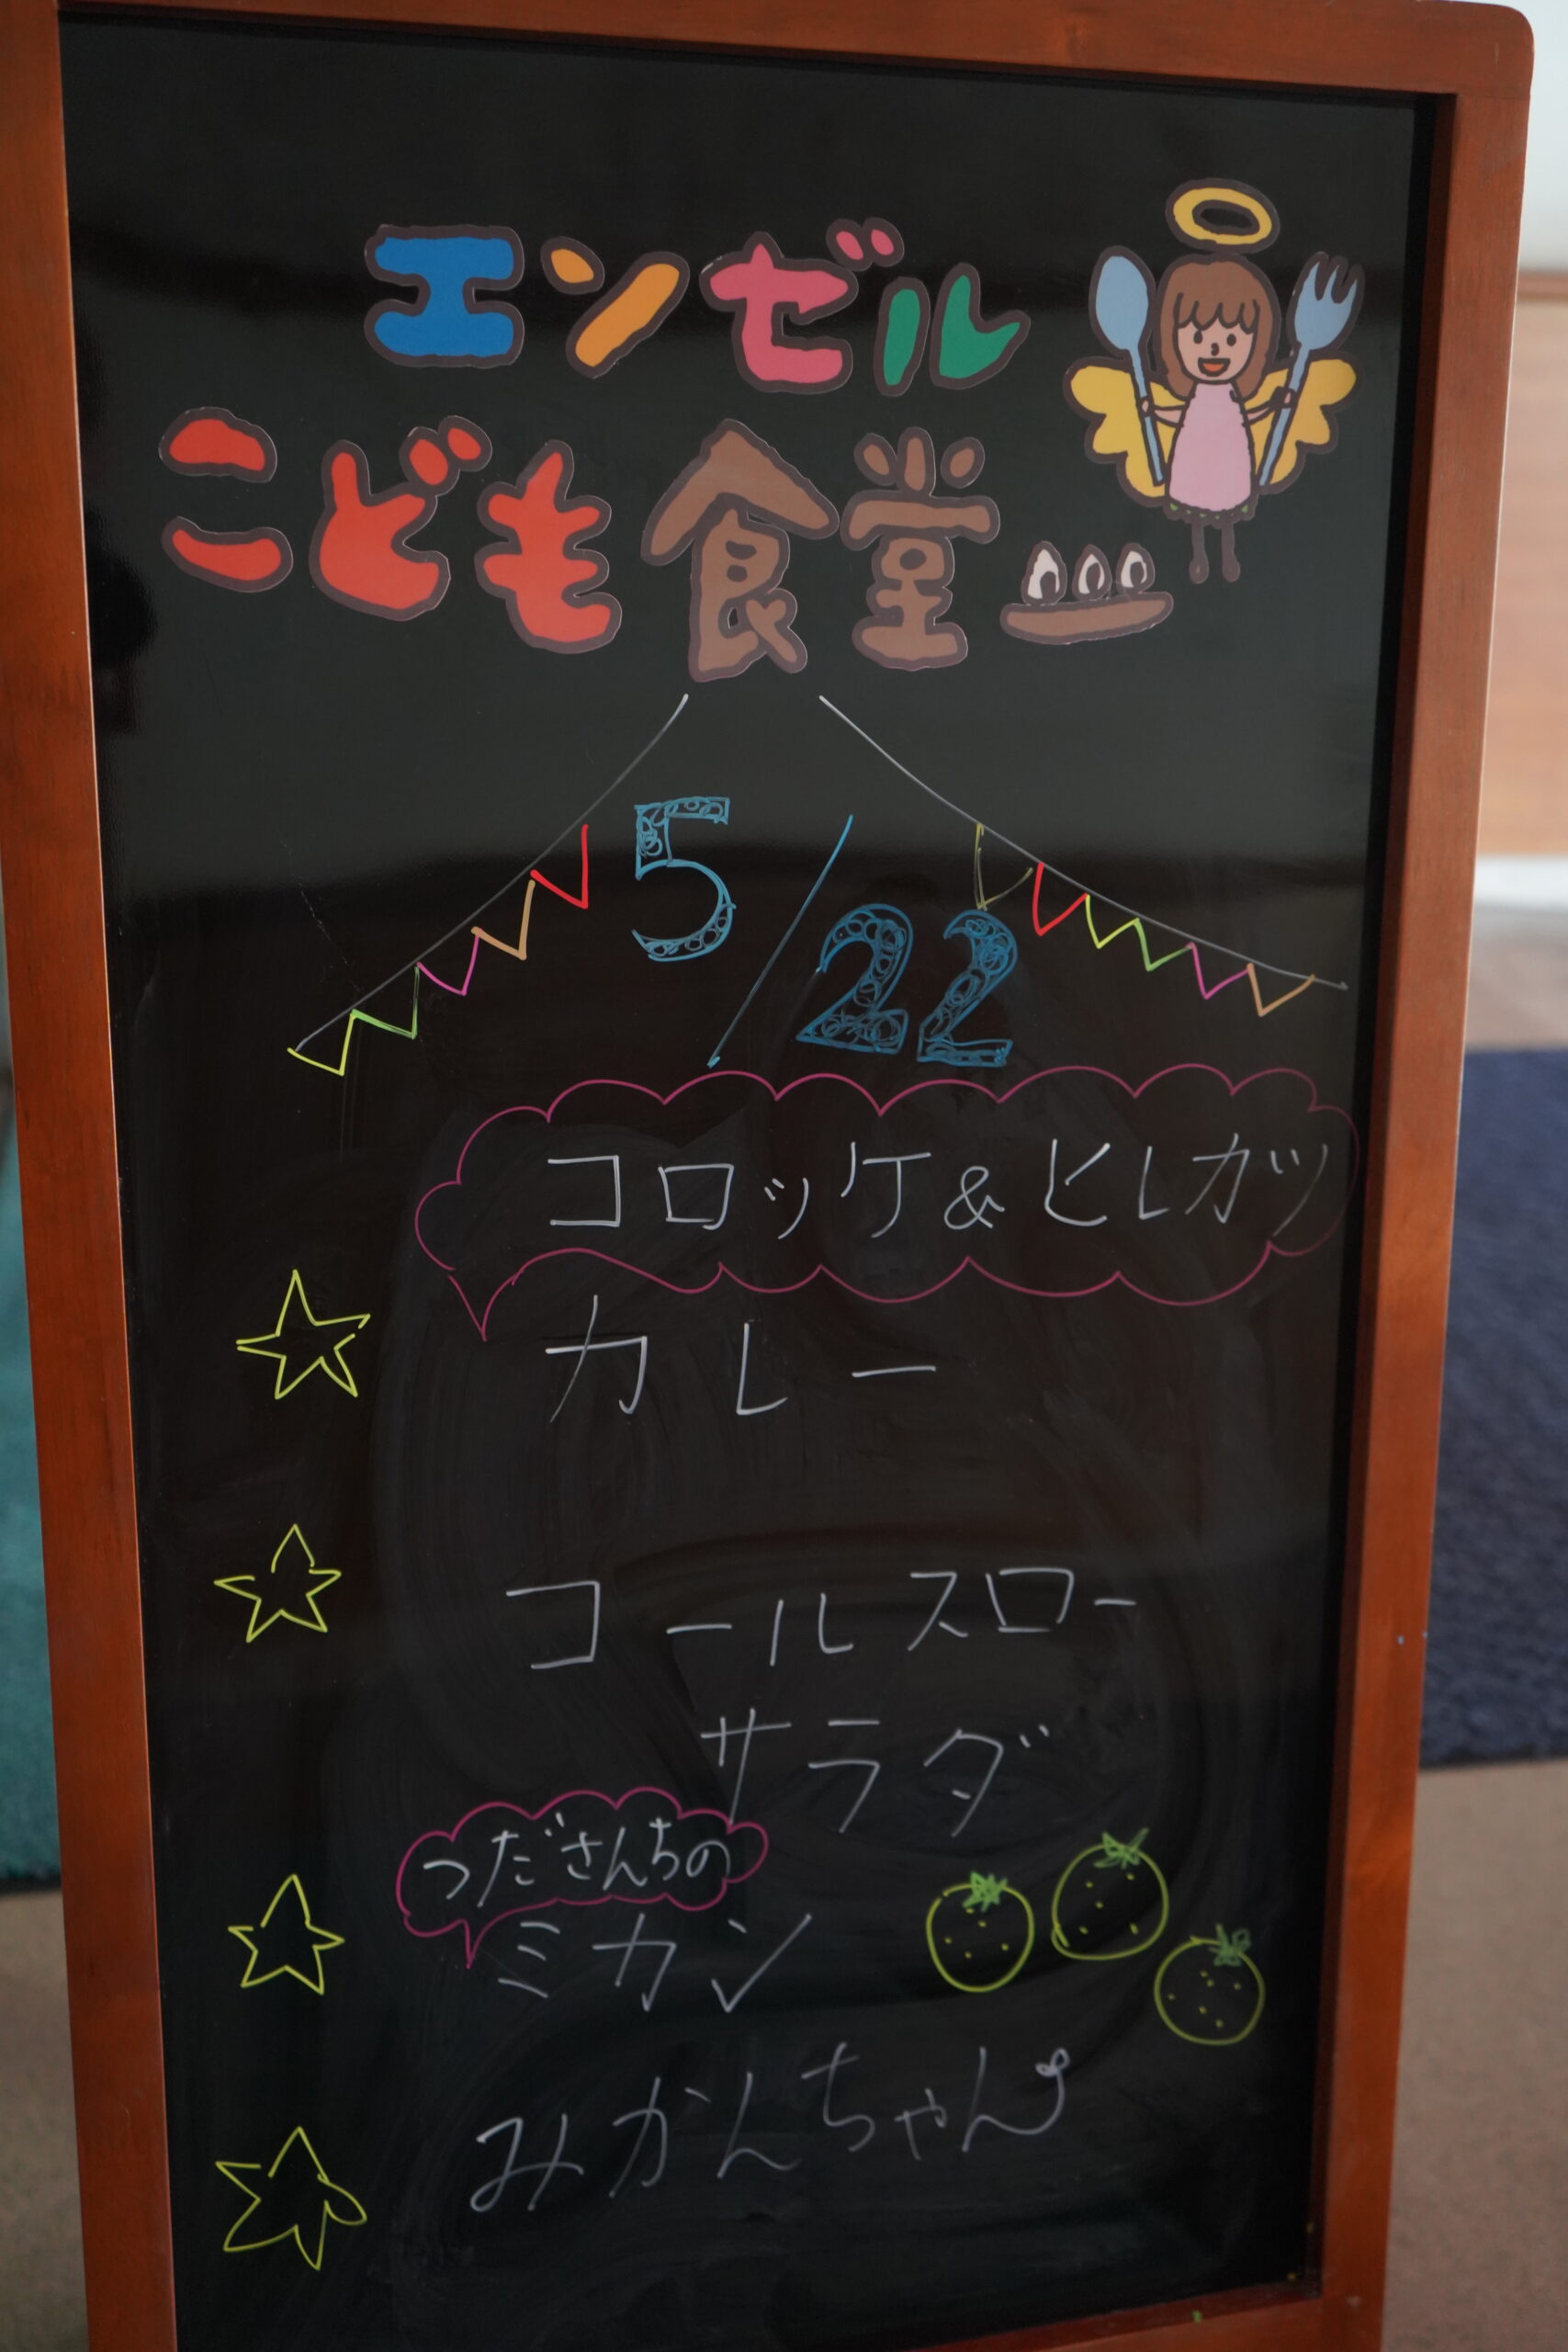 エンゼル
こども食堂
5/22
コロッケ&ヒレカツ
カレー
コールスロー
サラダ
つださんちの
ミカン
みかんちゃん